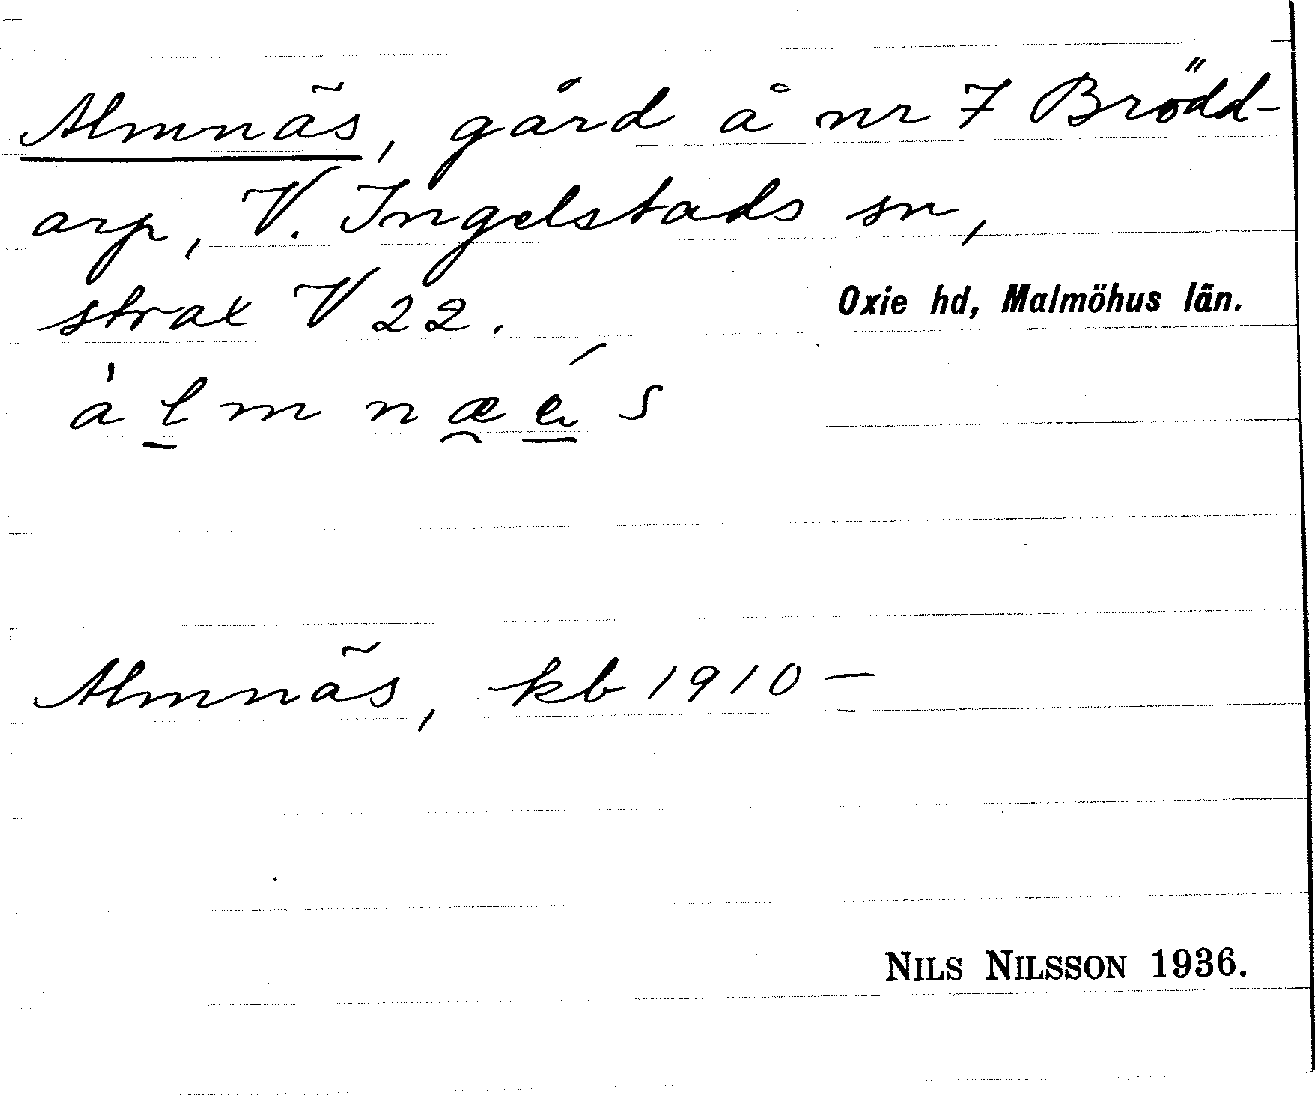 Almnäs, gård å nr 7 Brödd-
arp, V. Ingelstads sn,
strax V 22.
Oxie hd, Malmöhus län.
àl̠m næ̯é̠s
Almnäs, kb 1910 —
NILS NILSSON 1936.